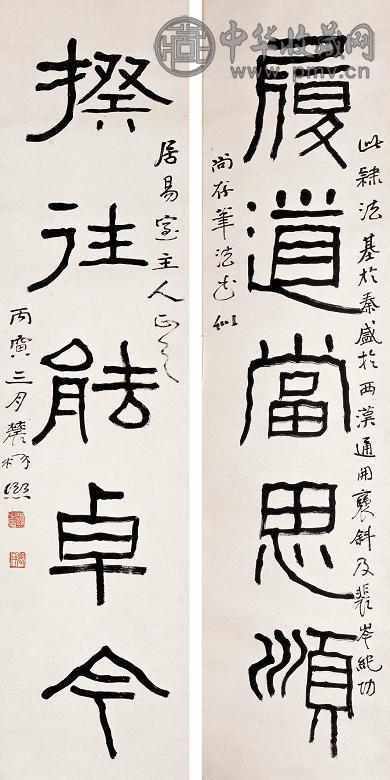 履道當思順
此隸法基於秦盛於西漢通用褒斜及裴岑紀功
尚存筆法
揆往能卓今
居易室主人正之
丙寅三月農髯熙
中华收藏网
www.pmv.cn